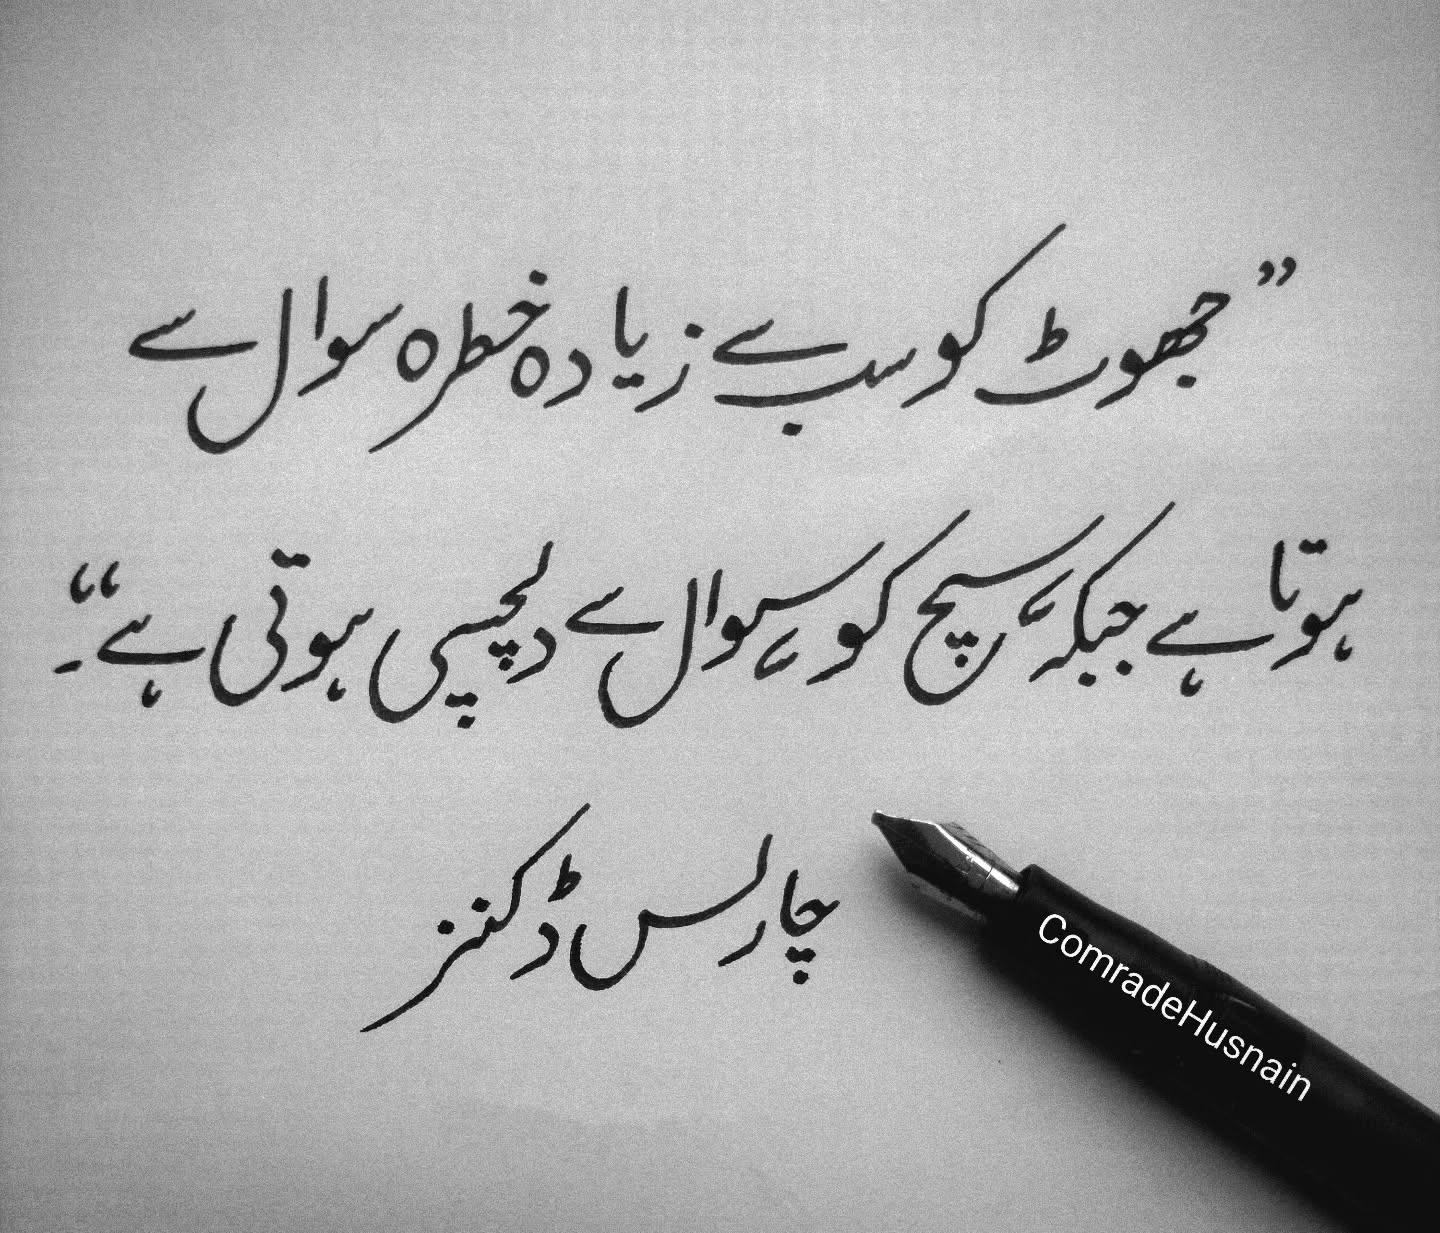 ”جھوٹ کو سب سے زیادہ خطرہ سوال سے
ہوتا ہے جبکہ سچ کو سوال سے دلچسپی ہوتی ہے۔“
چارلس ڈکنز
ComradeHusnain